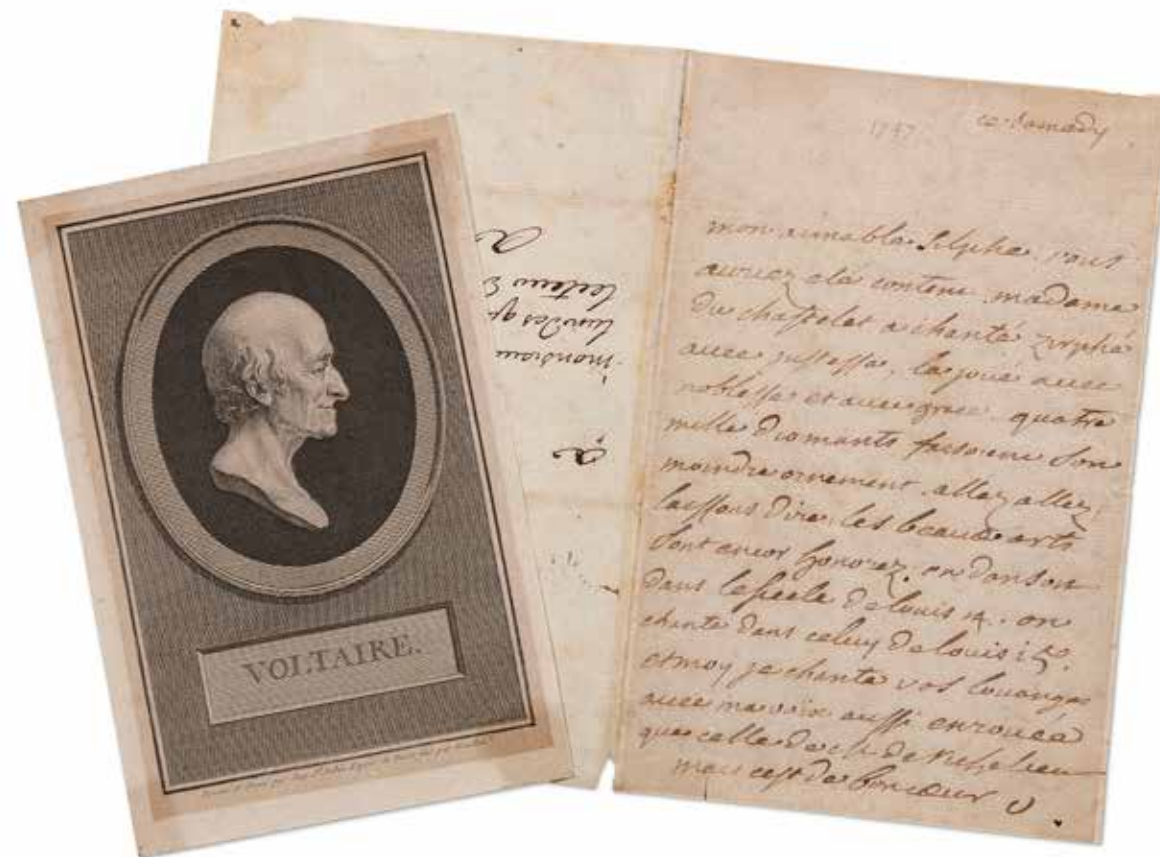 VOLTAIRE.
monsieur
lecteur
a
1747. ce samedy
mon aimable Silphe, vous
auriez été content. madame
du chastelet a chanté zirphé
avec justesse, l'a joué avec
noblesse et avec grace. quatre
mille diamants faisoient son
moindre ornement. allez allez,
laissons dire, les beaux arts
sont encor honorez. on danson
dans le siecle de louis 14. on
chante dans celuy de louis 15.
et moy je chante vos louanges
avec ma voix aussi enrouée
que celle de
mais c'est de bon cœur V